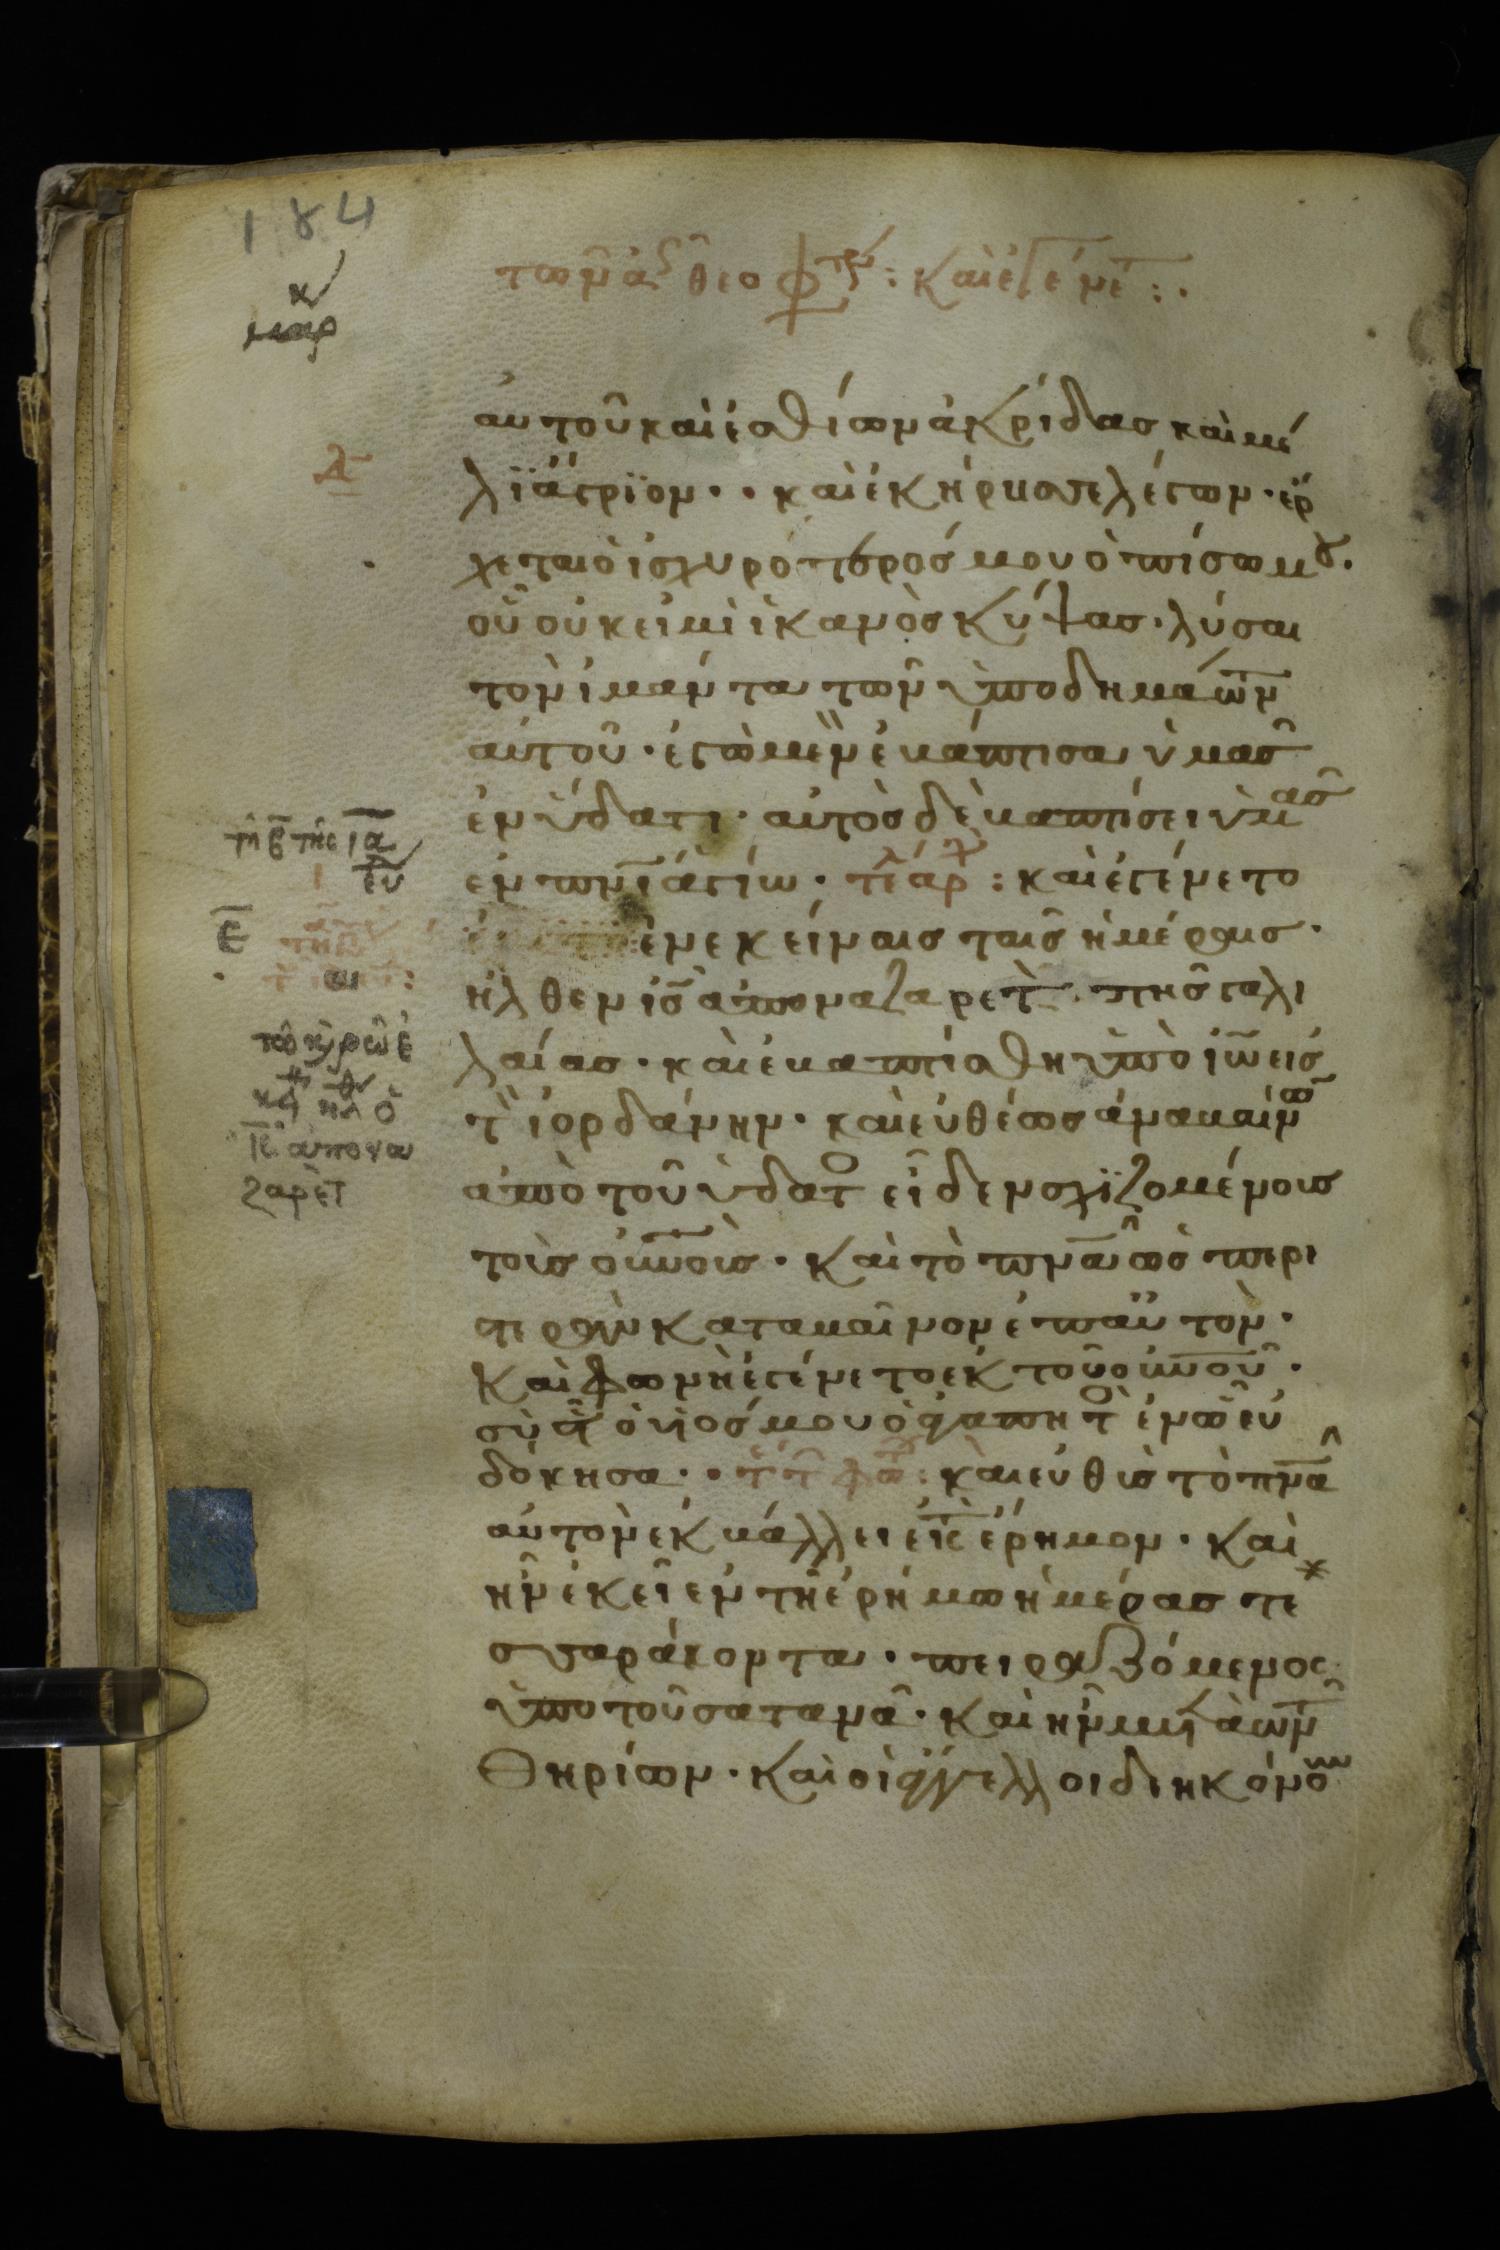 184
μαρ
τῶν ἁγ θεοφ : Καὶ ἐγένε :.
αυτοῦ καὶ ἐσθίων ἀκρίδας καὶ μέ
λϊ ἄγρϊον · · καὶ ἐκήρυσσε λέγων · ἔρ
χεται ὁ ἰσχυρότερός μου ὀπίσω μου.
οὗ οὐκ εἰμὶ ἱκανὸς κύψας · λύσαι
τὸν ἱμάντα τῶν ὑποδημάτων
αὐτοῦ · ἐγὼ μὲν ἐβάπτισα ὑμᾶς
ἐν ὕδατι · αὐτὸς δὲ βαπτίσει ὑμᾶς
ἐν πνϊ ἁγίω · : καὶ ἐγένετο
ἐν ἐκείναις ταῖς ἡμέραις ·
ἦλθεν ἰς ἀπο ναζαρετ · τῆς γαλι
λαίας · καὶ ἐβαπτίσθη ὑπὸ ἰω εις
τ ἰορδάνην · καὶ εὐθέως ἀναβαίνων
ἀπὸ τοῦ ὑδατ εἶδεν σχϊζομένους
τοὺς οὐνους · Καὶ τὸ πνα ὡς περι
στερὰν καταβαῖνον ἐπ αὐτὸν ·
Καὶ φωνὴ ἐγένετο ἐκ τοῦ οὐνου ·
σὺ εἶ ὁ υἱός μου ὁ ἀγαπητ ἐν ὧ εὐ
δόκησα · · : καὶ εὐθὺς τὸ πνα
αὐτὸν ἐκβάλλει εἰς ἔρημον · Καὶ
ἦν ἐκεῖ ἐν τῆ ἐρήμω ἡμέρας τε
σσαράκοντα · πειραζόμενος
ὑπο τοῦ σατανᾶ · Καὶ ἦν μετὰ τῶν
θηρίων · Καὶ οἱ ἄγγελλοι διηκόνουν
τῆ β τῆς ια
ε
τῶ κρῶ ἐ
κ ηλ ὁ
ις ἀπο να
ζαρετ